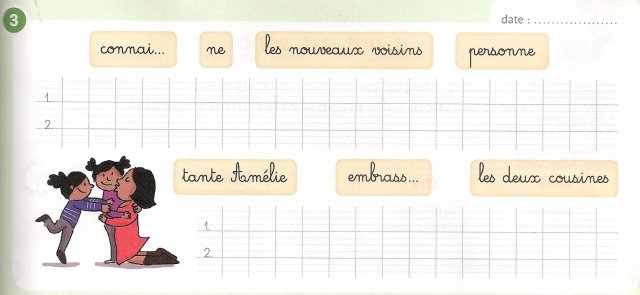 3
date : ....................
connai... ne les nouveaux voisins personne
1.
2.
tante Amélie embrass... les deux cousines
1.
2.